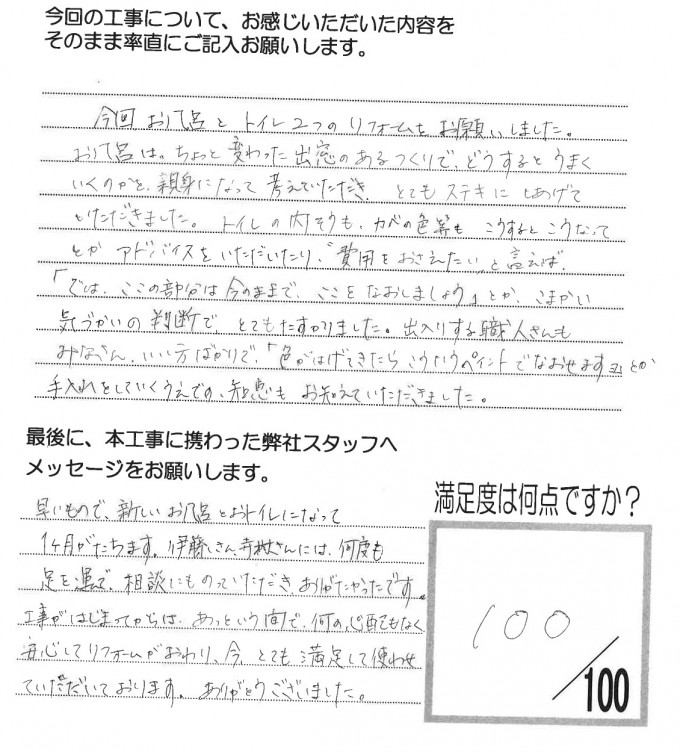 今回の工事について、お感じいただいた内容を
そのまま率直にご記入お願いします。
今回 お風呂と トイレ 2つの リフォームを お願いしました。
お風呂は、ちょっと 変わった 出窓の あるつくりで、どうすると うまく
いくのかと、親身になって 考えていただき、 とても ステキに しあげて
いただきました。 トイレの内そうも、カベの色等も こうするとこうなって
とか アドバイスを いただいたり、「費用をおさえたい」と言えば、
「では、ここの部分は今のままで、ここを なおしましょう」とか、こまかい
気づかいの 判断で、とてもたすかりました。出入りする職人さんも
みなさん、いい方ばかりで、「色がはげてきたら こういうペイントで なおせますョ」とか
手入れをしていくうえでの、知恵も お知えていただきました。
最後に、本工事に携わった弊社スタッフへ
メッセージをお願いします。
早いもので、新しいお風呂とおトイレになって
1ヶ月がたちます。伊藤さん、寺村さんには、何度も
足を運で、相談にものっていただき ありがたかったです。
工事がはじまってからは、あっという間で、何の心配もなく
安心してリフォームがおわり、今、とても 満足して使わせ
ていただいております。ありがとうございました。
満足度は何点ですか？
100
/100